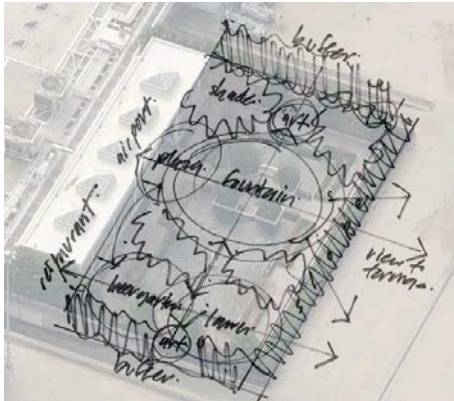 buffer.
shade.
art
airport.
plaza.
fountain.
restaurant.
view t
beergarden / tower
art
buffer.